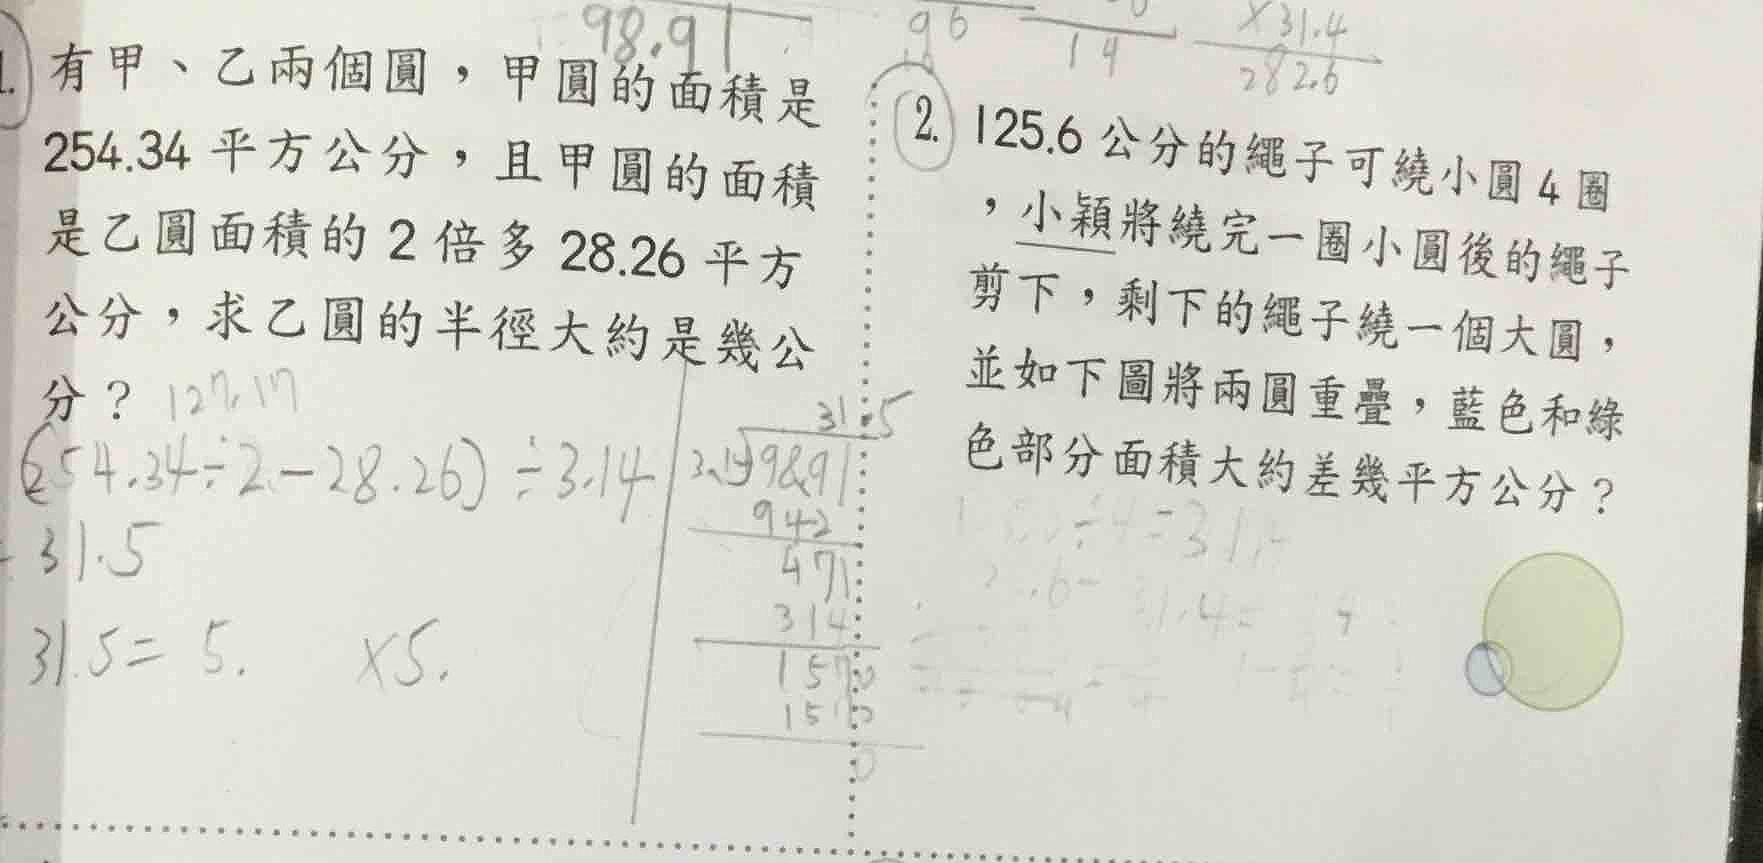 98.91
96
14
×31.4
282.6
1. 有甲、乙兩個圓，甲圓的面積是
254.34 平方公分，且甲圓的面積
是乙圓面積的 2 倍多 28.26 平方
公分，求乙圓的半徑大約是幾公
分？ 127.17
(254.34÷2-28.26)÷3.14
31.5
31.5=5. ×5.
31.5
3.14 9891
942
471
314
1570
1570
0
2. 125.6 公分的繩子可繞小圓 4 圈
，小穎將繞完一圈小圓後的繩子
剪下，剩下的繩子繞一個大圓，
並如下圖將兩圓重疊，藍色和綠
色部分面積大約差幾平方公分？
÷4=31.4
31.4=